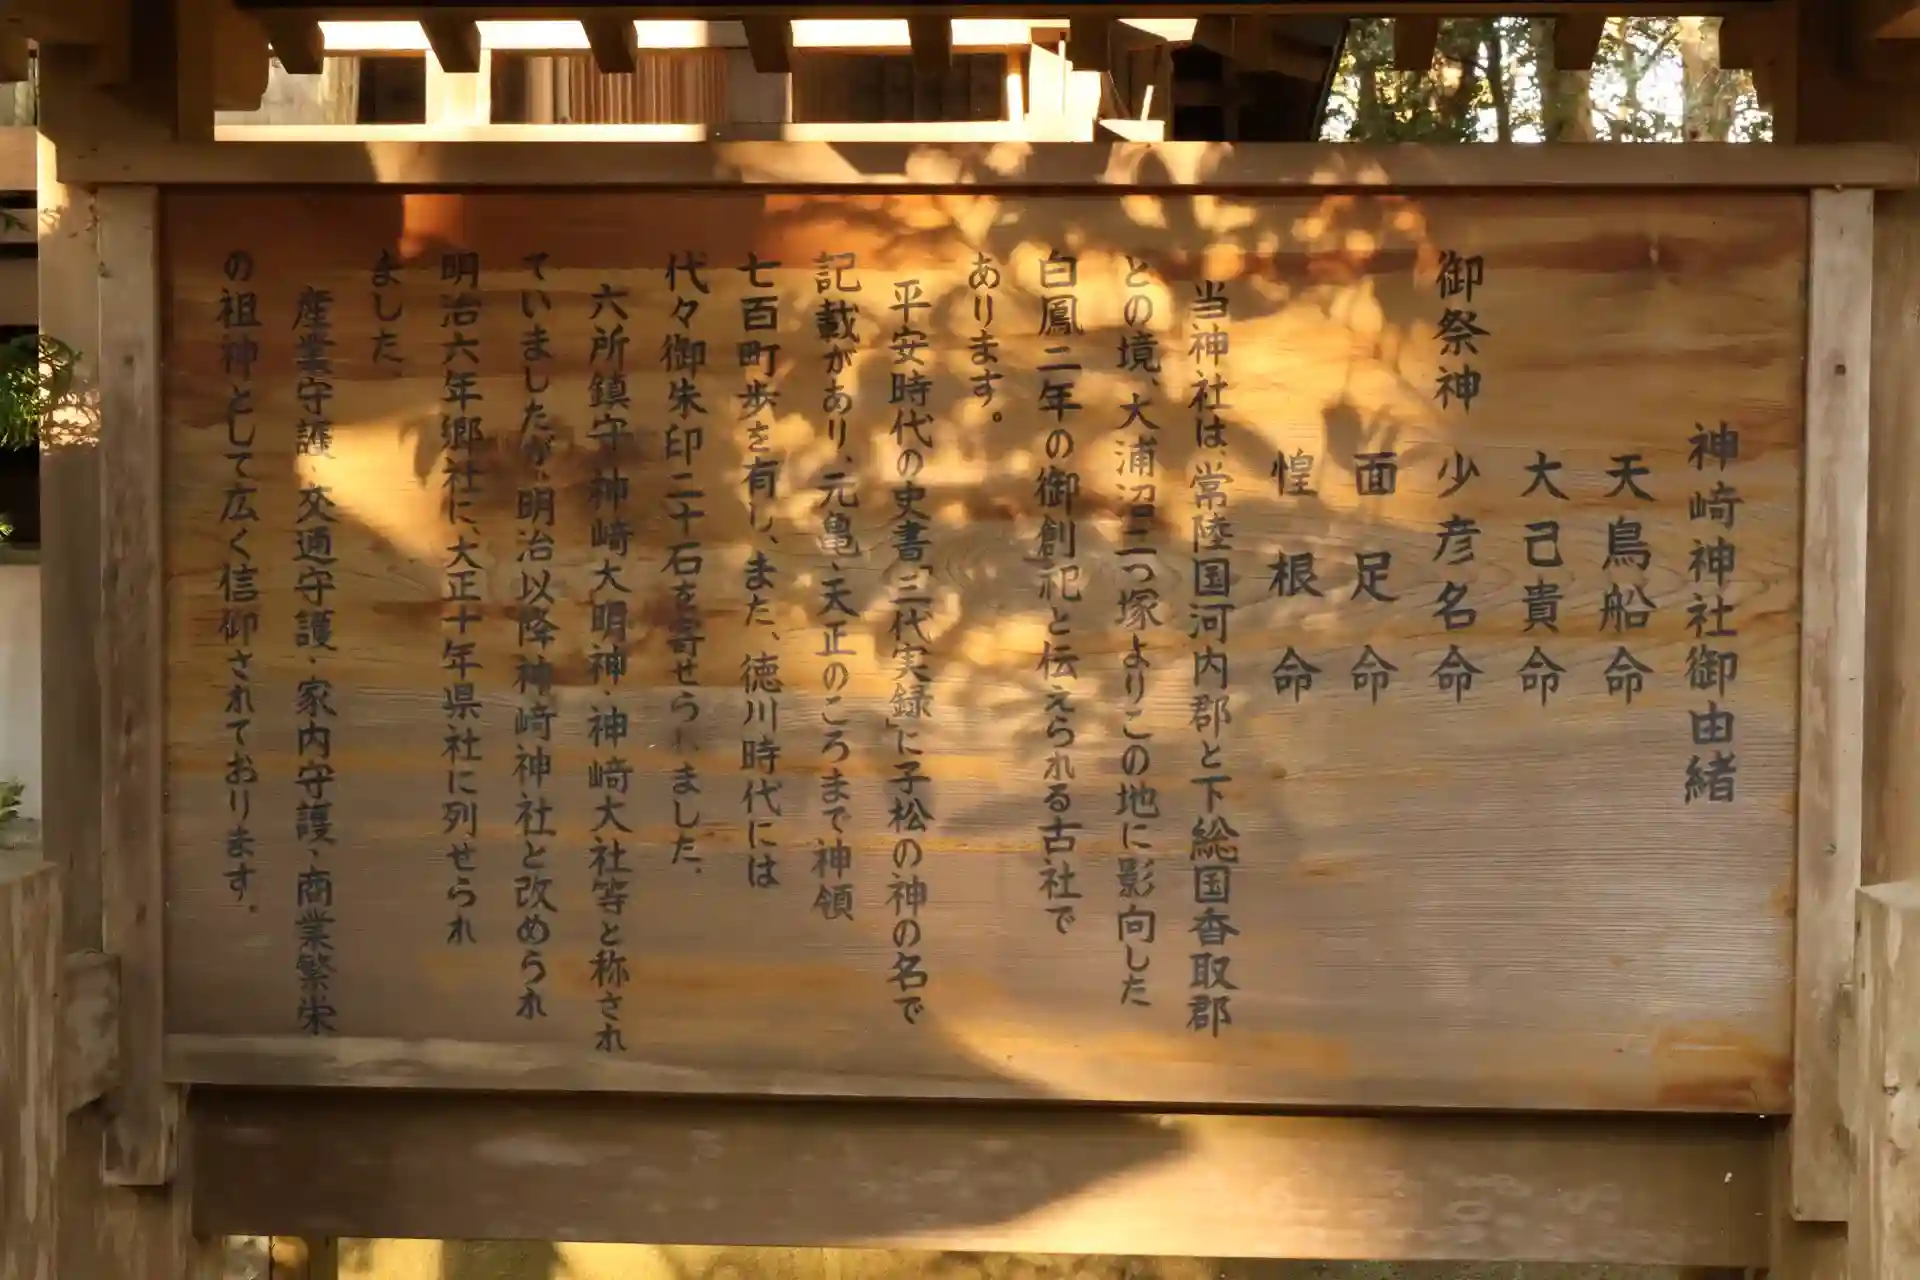 神崎神社御由緒
天鳥船命
大己貴命
御祭神 少彦名命
面足命
惶根命
当神社は、常陸国河内郡と下総国香取郡
との境、大浦沼二つ塚よりこの地に影向した
白鳳二年の御創祀と伝えられる古社で
あります。
平安時代の史書「三代実録」に子松の神の名で
記載があり、元亀・天正のころまで神領
七百町歩を有し、また、徳川時代には
代々御朱印二十石を寄せられました。
六所鎮守神崎大明神・神崎大社等と称され
ていましたが、明治以降神崎神社と改められ
明治六年郷社に、大正十年県社に列せられ
ました。
産業守護・交通守護・家内守護・商業繁栄
の祖神として広く信御されております。